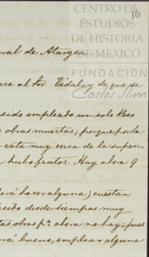 CENTRO DE
ESTUDIOS
DE HISTORIA
DE MÉXICO
FUNDACIÓN
Carlos Slim
16
ral de Atargea
ce al Sor. Vidal, y de que se
sido empleado un solo Pes
obras muertas, porque por la
veta muy cerca de la super
hubo frutos. Hay ahora 9
rá hacer alguna; cuestan
desde tiempos muy
tas obras pa. ahora no hay; pues
rá bueno, emplear alguna